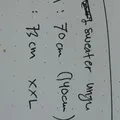 sweater ungu
: 70 cm (140cm)
: 73 cm XXL